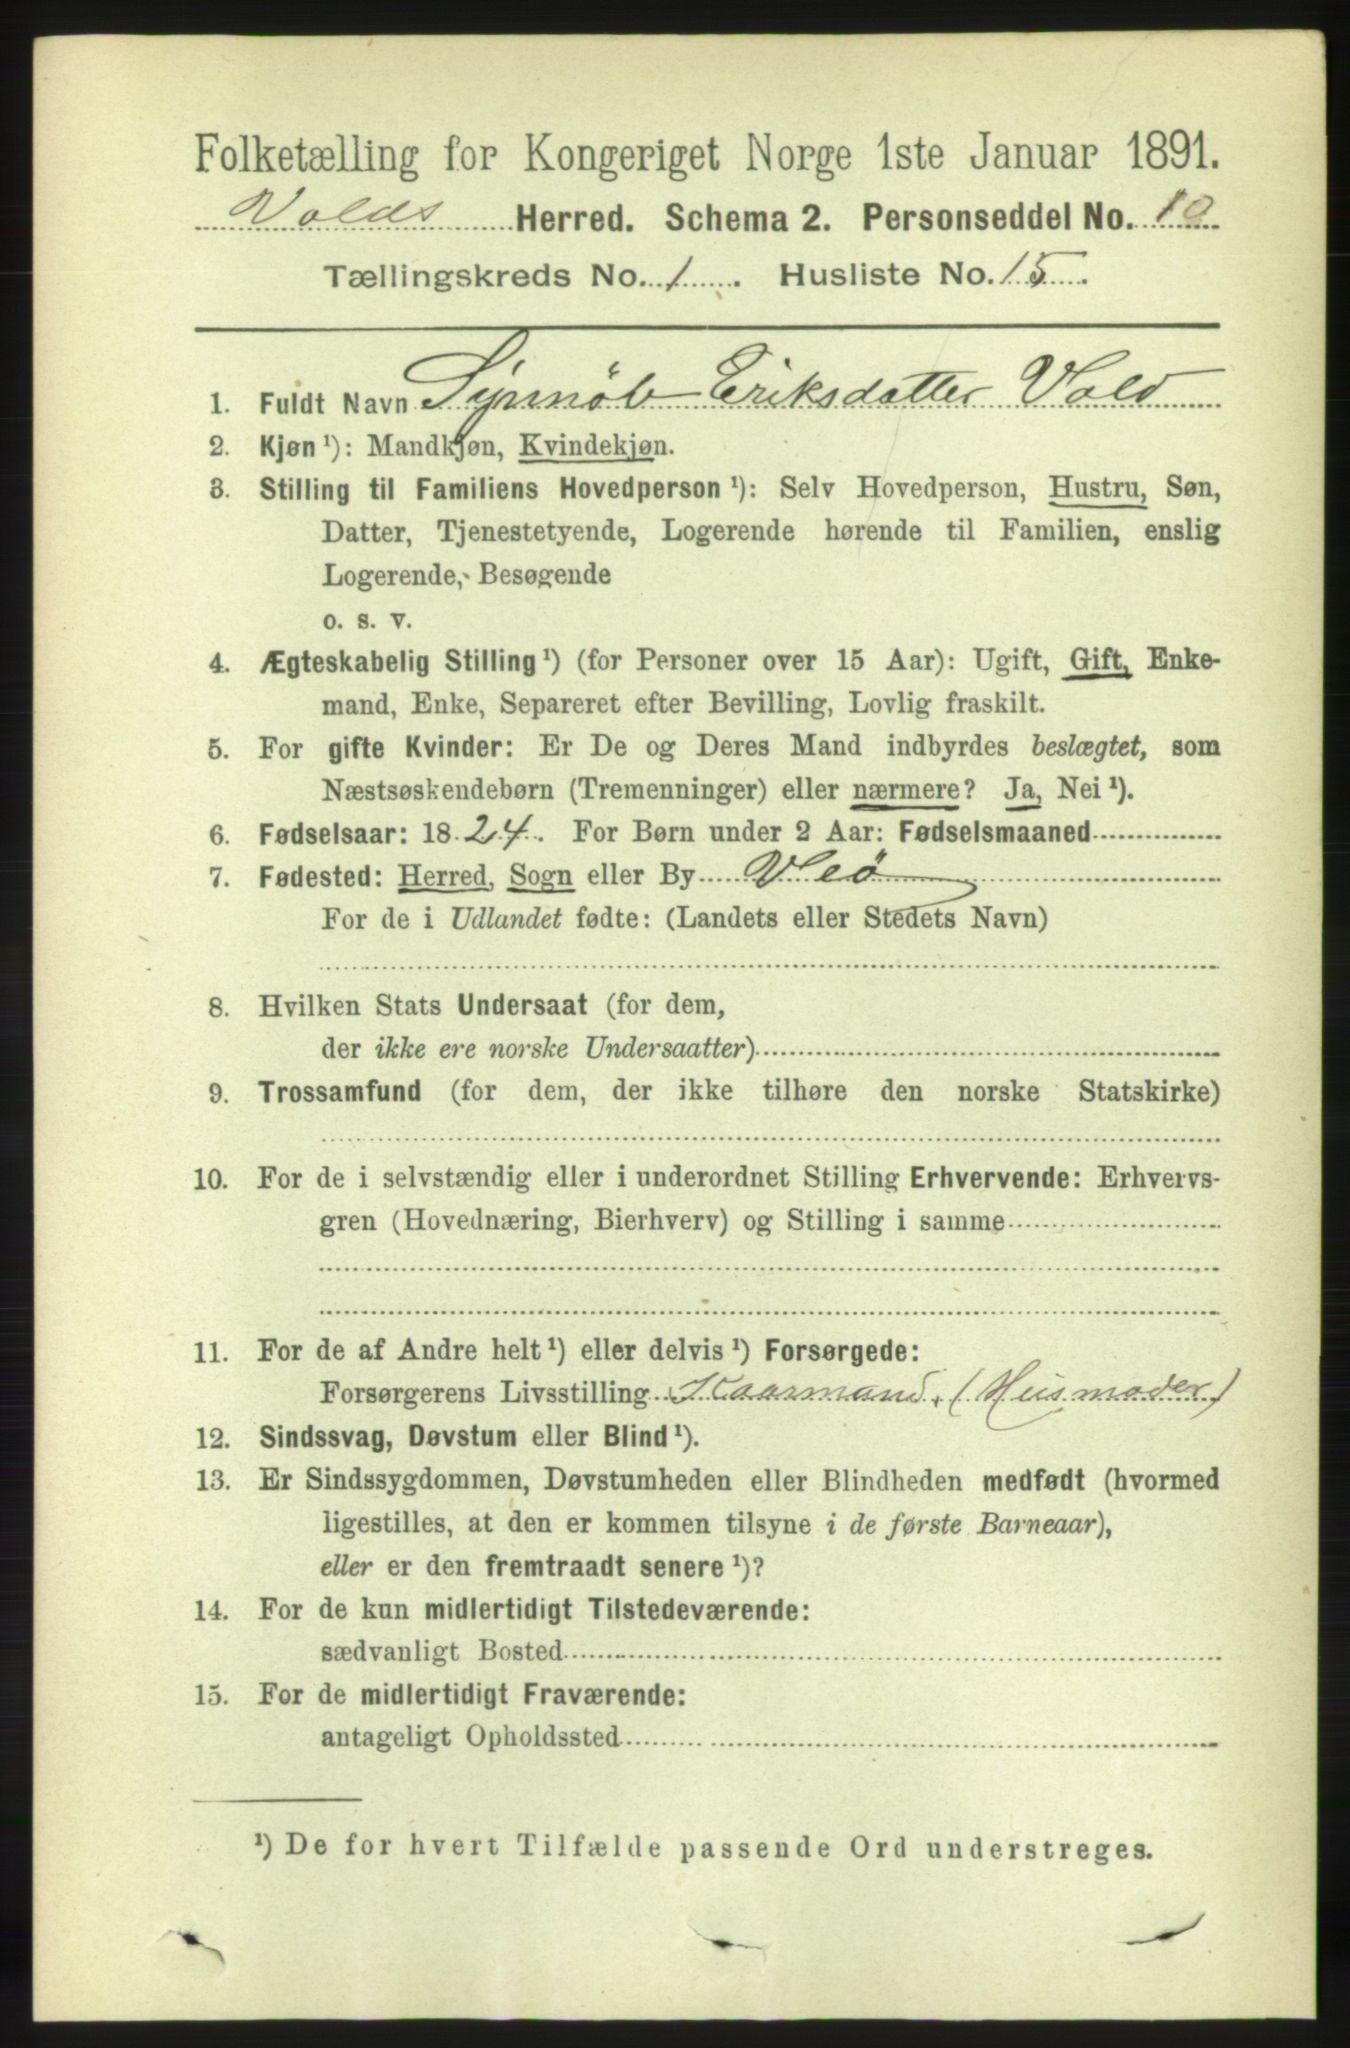 Folketælling for Kongeriget Norge 1ste Januar 1891.
Volds Herred. Schema 2. Personseddel No. 10
Tællingskreds No. 1. Husliste No. 15.
1. Fuldt Navn Synnöb Eriksdatter Vold
2. Kjøn ¹): Mandkjøn, Kvindekjøn.
3. Stilling til Familiens Hovedperson ¹): Selv Hovedperson, Hustru, Søn,
Datter, Tjenestetyende, Logerende hørende til Familien, enslig
Logerende, Besøgende
o. s. v.
4. Ægteskabelig Stilling ¹) (for Personer over 15 Aar): Ugift, Gift, Enke-
mand, Enke, Separeret efter Bevilling, Lovlig fraskilt.
5. For gifte Kvinder: Er De og Deres Mand indbyrdes beslægtet, som
Næstsøskendebørn (Tremenninger) eller nærmere? Ja, Nei ¹).
6. Fødselsaar: 1824. For Børn under 2 Aar: Fødselsmaaned
7. Fødested: Herred, Sogn eller By Veö
For de i Udlandet fødte: (Landets eller Stedets Navn)
8. Hvilken Stats Undersaat (for dem,
der ikke ere norske Undersaatter)
9. Trossamfund (for dem, der ikke tilhøre den norske Statskirke)
10. For de i selvstændig eller i underordnet Stilling Erhvervende: Erhvervs-
gren (Hovednæring, Bierhverv) og Stilling i samme
11. For de af Andre helt ¹) eller delvis ¹) Forsørgede:
Forsørgerens Livsstilling Kaarmand, (Husmoder)
12. Sindssvag, Døvstum eller Blind ¹).
13. Er Sindssygdommen, Døvstumheden eller Blindheden medfødt (hvormed
ligestilles, at den er kommen tilsyne i de første Barneaar),
eller er den fremtraadt senere ¹)?
14. For de kun midlertidigt Tilstedeværende:
sædvanligt Bosted
15. For de midlertidigt Fraværende:
antageligt Opholdssted
¹) De for hvert Tilfælde passende Ord understreges.